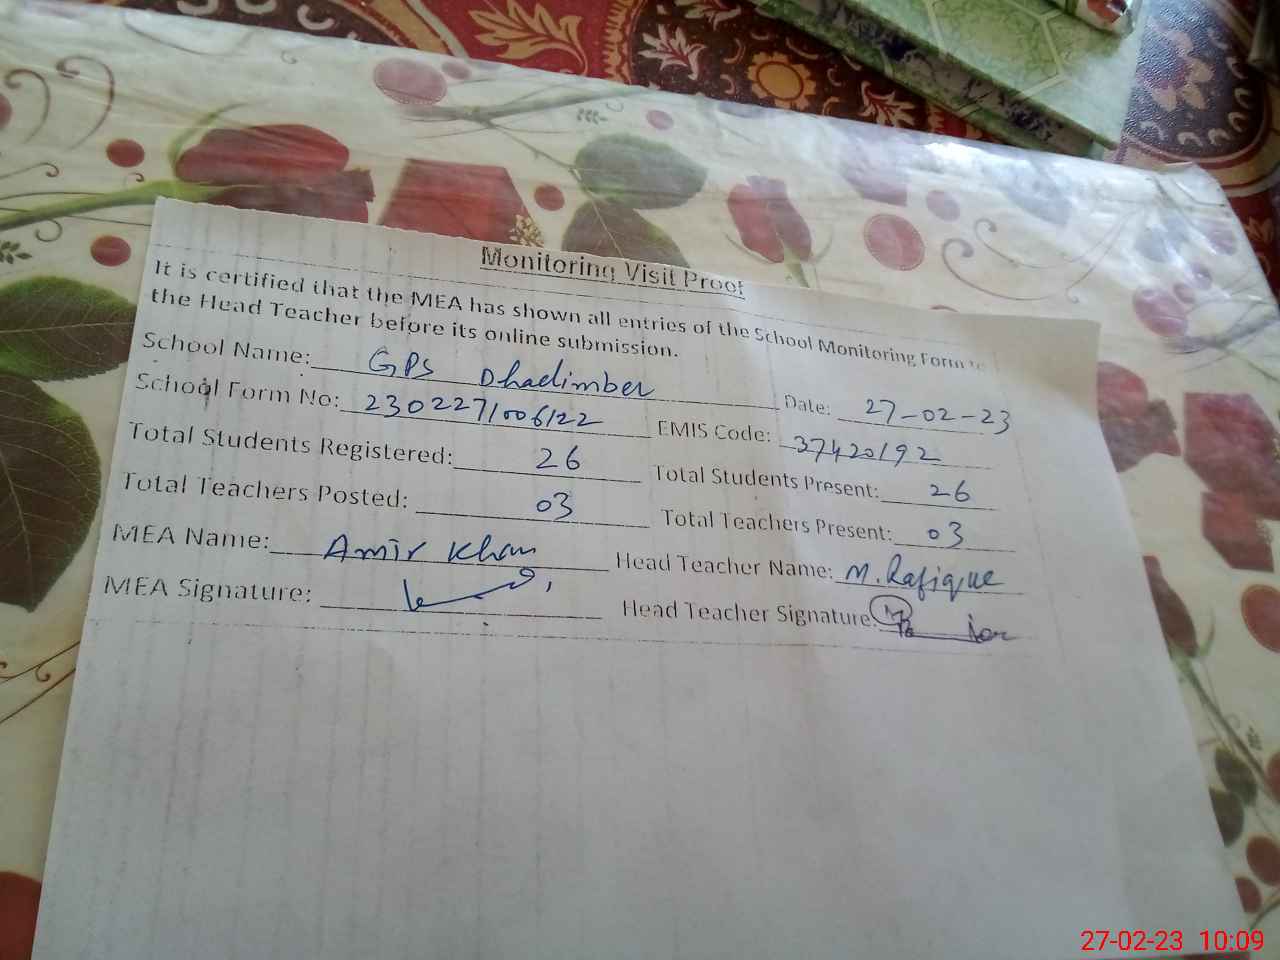 Monitoring Visit Proof
It is certified that the MEA has shown all entries of the School Monitoring Form to
the Head Teacher before its online submission.
School Name: GPS Dhadimber Date: 27-02-23
School Form No: 2302271006122 EMIS Code: 37420192
Total Students Registered: 26 Total Students Present: 26
Total Teachers Posted: 03 Total Teachers Present: 03
MEA Name: Amir Khan Head Teacher Name: M. Rafique
MEA Signature: Head Teacher Signature:
27-02-23 10:09